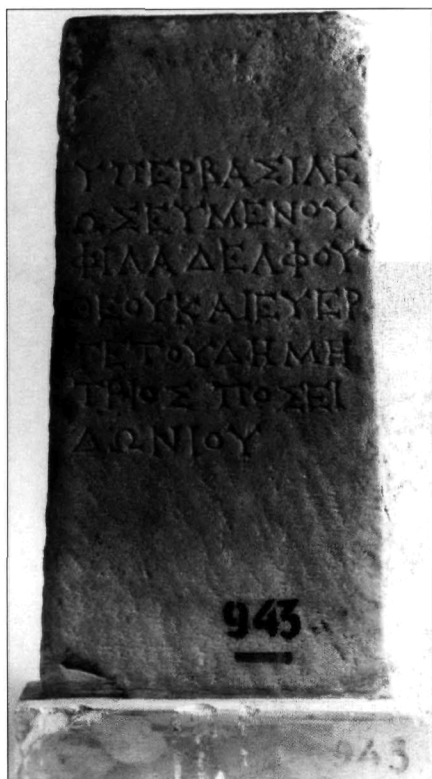 ΥΠΕΡΒΑΣΙΛΕ
ΩΣΕΥΜΕΝΟΥ
ΦΙΛΑΔΕΛΦΟΥ
ΘΕΟΥΚΑΙΕΥΕΡ
ΓΕΤΟΥΔΗΜΗ
ΤΡΙΟΣ ΠΟΣΕΙ
ΔΩΝΙΟΥ
943
943